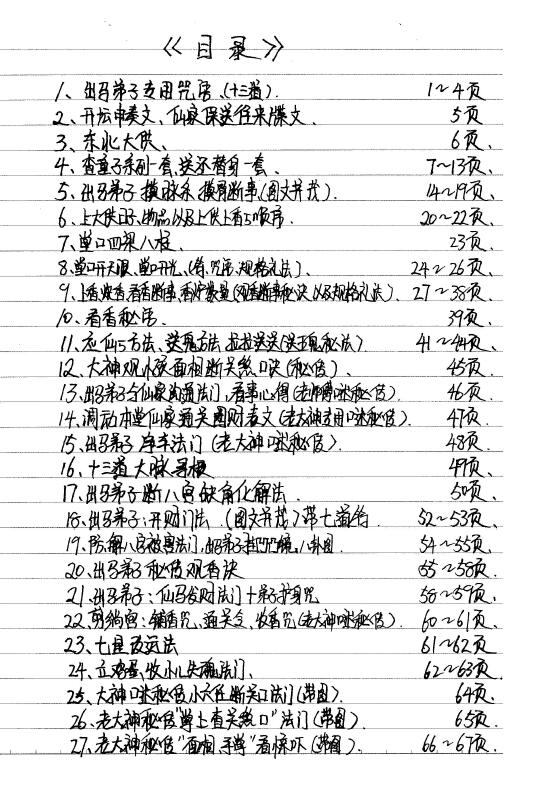 《目录》
1、出马弟子专用咒语、(十三道). 1~4页
2、开坛申奏文、仙家保送往来牒文、 5页
3、东北大供、 6页
4、查童子条例一套、送还替身一套、 7~13页
5、出马弟子摸脉条、摸骨断事(图文并茂). 14~19页
6、上大供子、物品以及上供上香的顺序. 20~22页
7、堂口四梁八柱. 23页
8、堂口开天眼、堂口开光、(符、咒语、规格礼法)、 24~26页
9、上香烧香、看香断事、香炉数量(观香断事秘诀以及规格礼法). 27~38页
10、看香秘法. 39页
11、应仙的方法、送鬼方法 41~44页
12、大神观小孩面相断关煞口诀(秘传)、 45页
13、出马弟子与仙家沟通法门、看事心得 46页
14、调动本堂仙家通关图财表文(老大神专用口咪秘传). 47页
15、出马弟子净车法门(老大神口咪秘传) 48页
16、十三道大脉寻根 49页
17、出马弟子断八宫缺角化解法 50页
18、出马弟子:开财门法、(图文并茂)带七道符 52~53页、
19、 八卦图. 54~55页、
20、出马弟子秘传观香诀 55~58页.
21、出马弟子:仙马发财法门十弟子护身咒 58~59页.
22、 (老大神口咪秘传). 60~61页.
23、七星改运法 61~62页
24、立鸡蛋、收小儿失魂法门、 62~63页.
25、大神口咪秘传小六壬断关口法门(带图). 64页.
26、老大神秘传"掌上查关煞口"法门(带图). 65页.
27、老大神秘传"面相、手掌"看惊吓(带图). 66~67页.